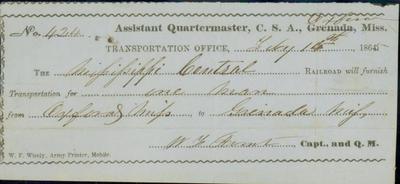 Assistant Quartermaster, C. S. A., Grenada, Miss.
No.
TRANSPORTATION OFFICE, Feby 16th 1864
THE Mississippi Central RAILROAD will furnish
Transportation for one man
from Oxford Miss to Grenada Miss
Capt., and Q. M.
W. F. Wisely, Army Printer, Mobile.